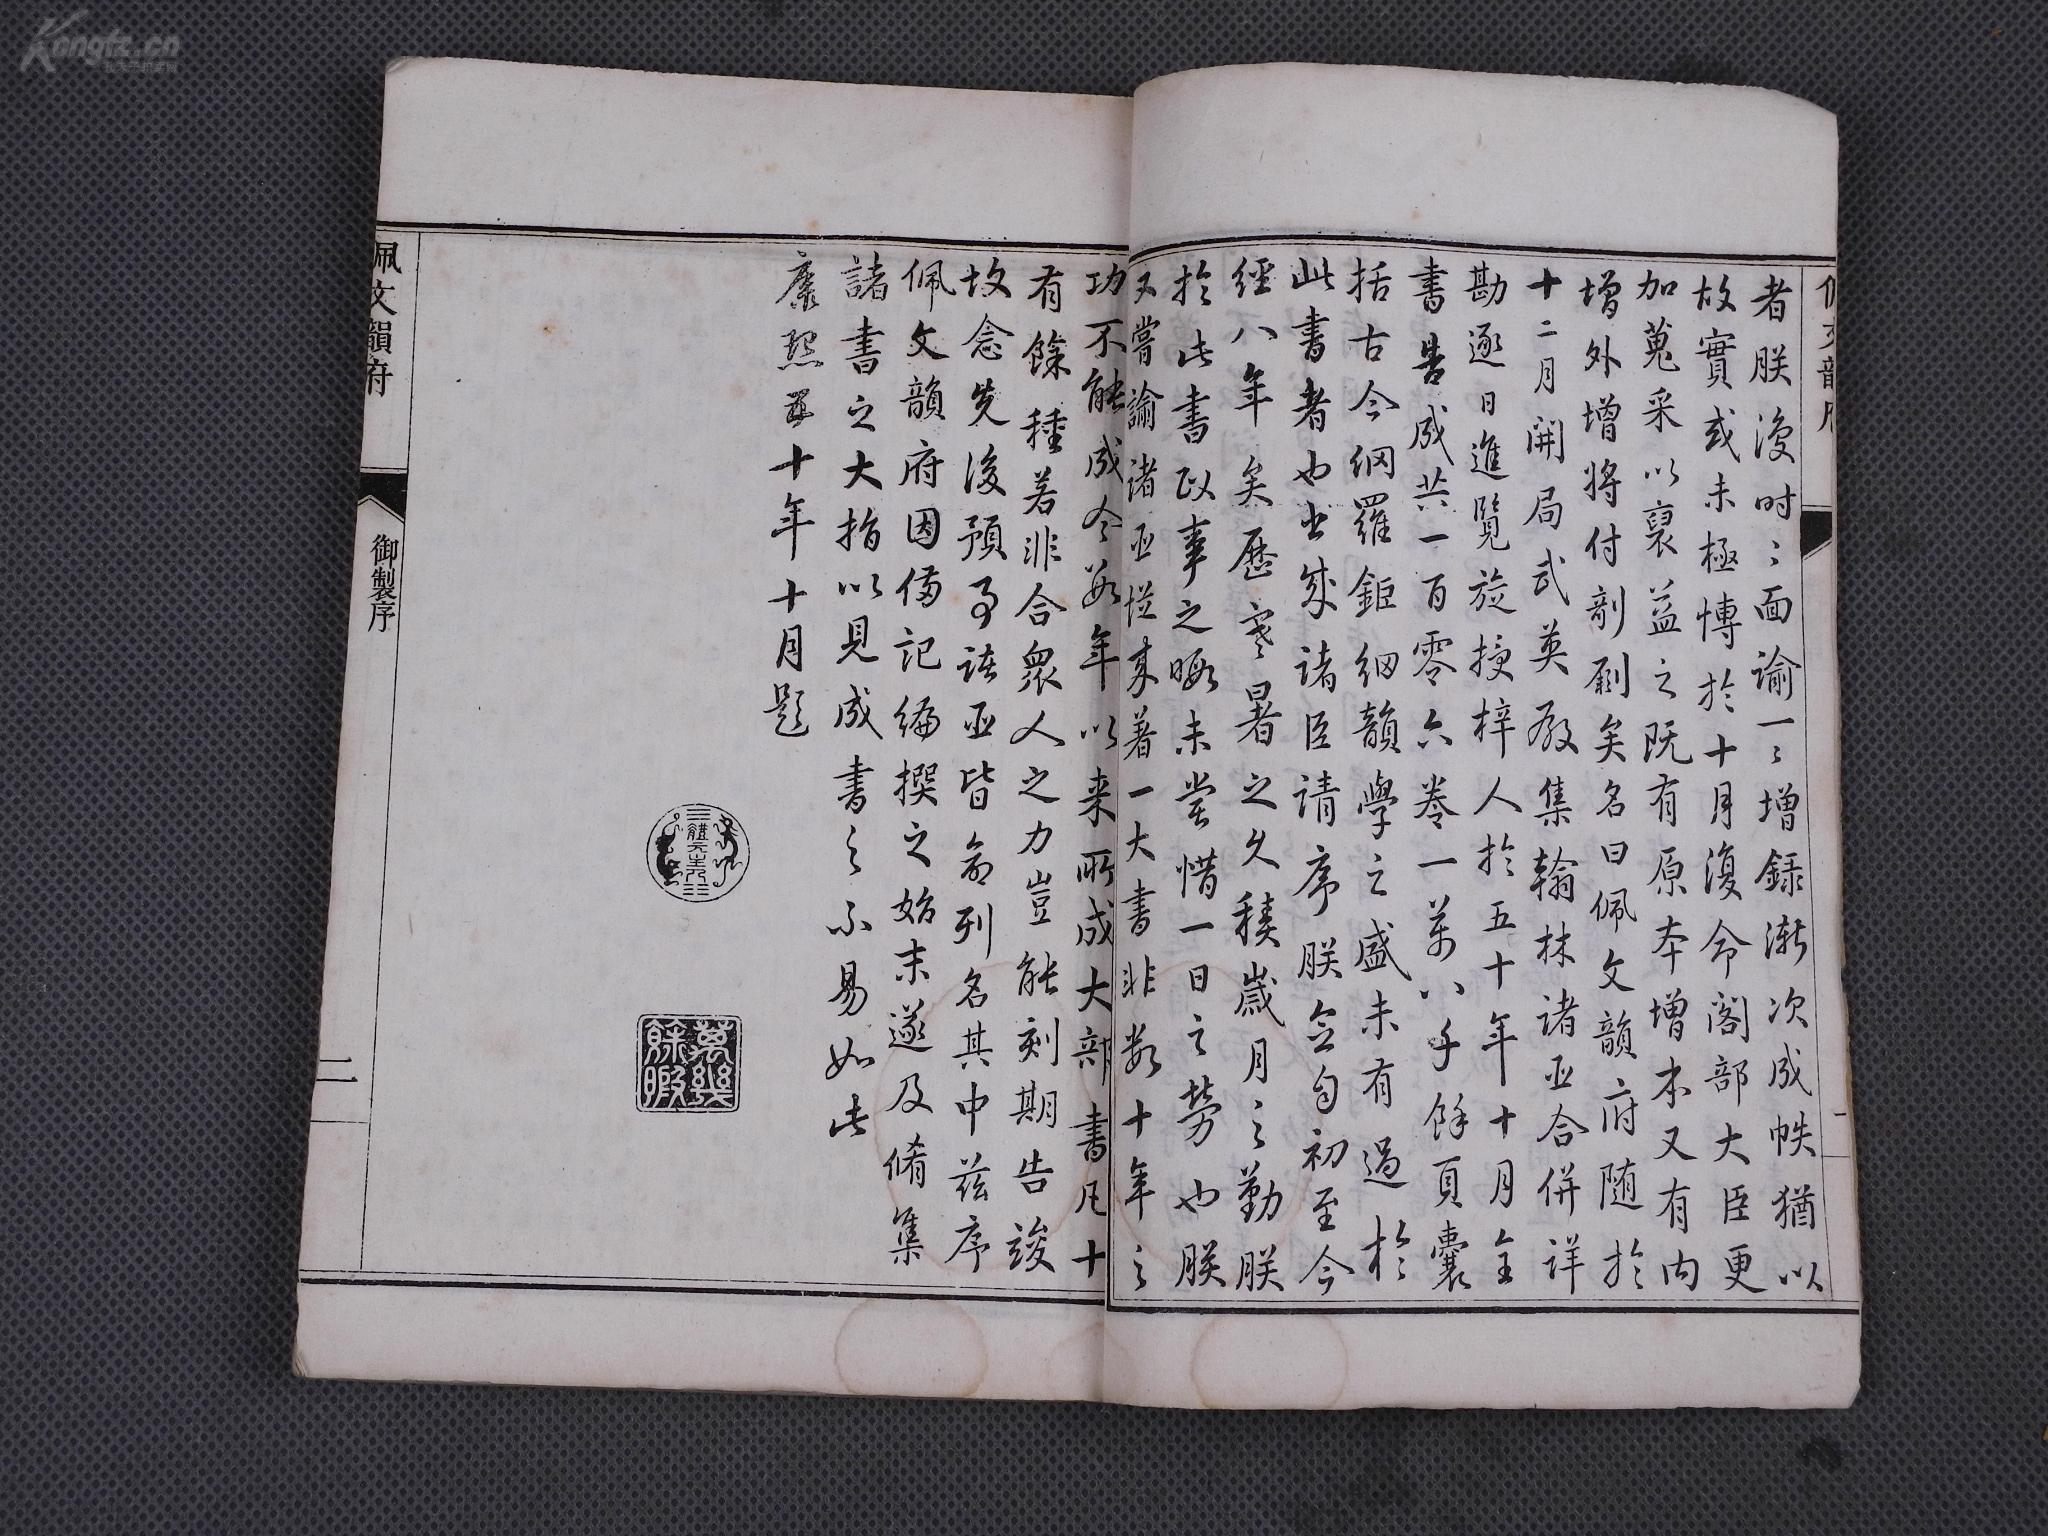 者朕復時〻面諭一〻增録漸次成帙猶以
故實或未極博於十月復命閣部大臣更
加蒐采以裒益之既有原本增本又有内
增外增將付剞劂矣名曰佩文韻府随於
十二月開局武英殿集翰林諸臣合併詳
勘逐日進覽旋授梓人於五十年十月全
書告成共一百零六卷一萬八千餘頁囊
括古今網羅鉅細韻學之盛未有過於
此書者也書成諸臣請序朕念自初至今
經八年矣歷寒暑之久積歲月之勤朕
於此書政事之暇未嘗惜一日之勞也朕
又嘗論諸臣從來著一大書非數十年之
功不能成今數年以來所成大部書凡十
有餘種若非合衆人之力豈能刻期告竣
故念先後預事諸臣皆命列名其中茲序
佩文韻府因備記編撰之始末遂及脩集
諸書之大指以見成書之不易如此
康熙五十年十月題
體元主人
萬幾餘暇
佩文韻府
御製序
二
Kongfz.cn